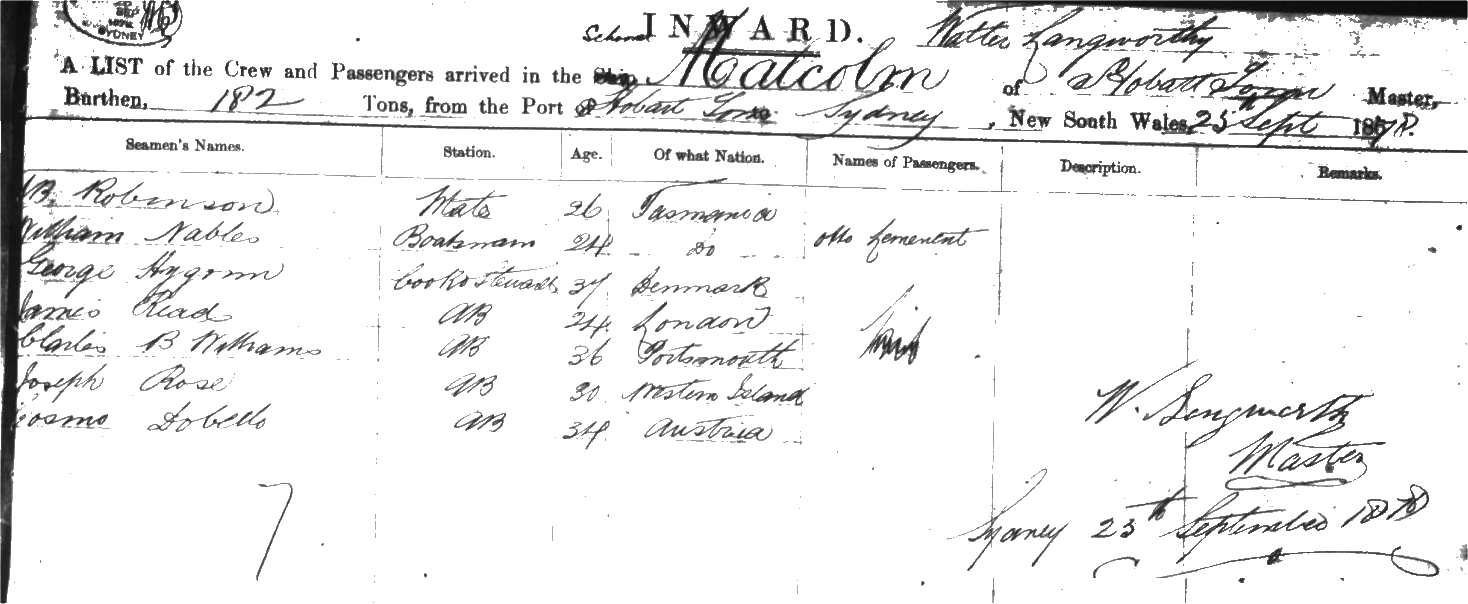 SEP
1878
SYDNEY
INWARD.
Walter Langworthy
A LIST of the Crew and Passengers arrived in the Schoner Malcolm of Hobart Town Master,
Burthen, 182 Tons, from the Port of Hobart Town Sydney, New South Wales, 23 Sept 1878.
Seamen's Names. Station. Age. Of what Nation. Names of Passengers. Description. Remarks.
Robinson Mate 26 Tasmania
William Nables Boatsman 24 Do Otto
George Hygom Cook & Steward 37 Denmark
James Read AB 24 London
Charles B Williams AB 36 Portsmouth
Joseph Rose AB 30 Western Island
Cosmo Dobello AB 34 Austria
W. Lengworth
Master
7
Sydney 23th September 1878